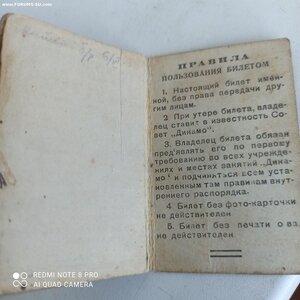 www.FORUMS-SU.com
ПРАВИЛА
ПОЛЬЗОВАНИЯ БИЛЕТОМ
1. Настоящий билет имен-
ной, без права передачи дру-
гим лицам.
2 При утере билета, владе-
лец ставит в известность Со-
вет „Динамо“.
3. Владелец билета обязан
предъявлять его по первому
требованию во всех учрежде-
ниях и местах занятий „Дина-
мо“ и подчиняться всем уста-
новленным там правилам внут-
реннего распорядка.
4 Билет без фото-карточки
не действителен
5. Билет без печати о вз.
не действителен
REDMI NOTE 8 PRO
AI QUAD CAMERA